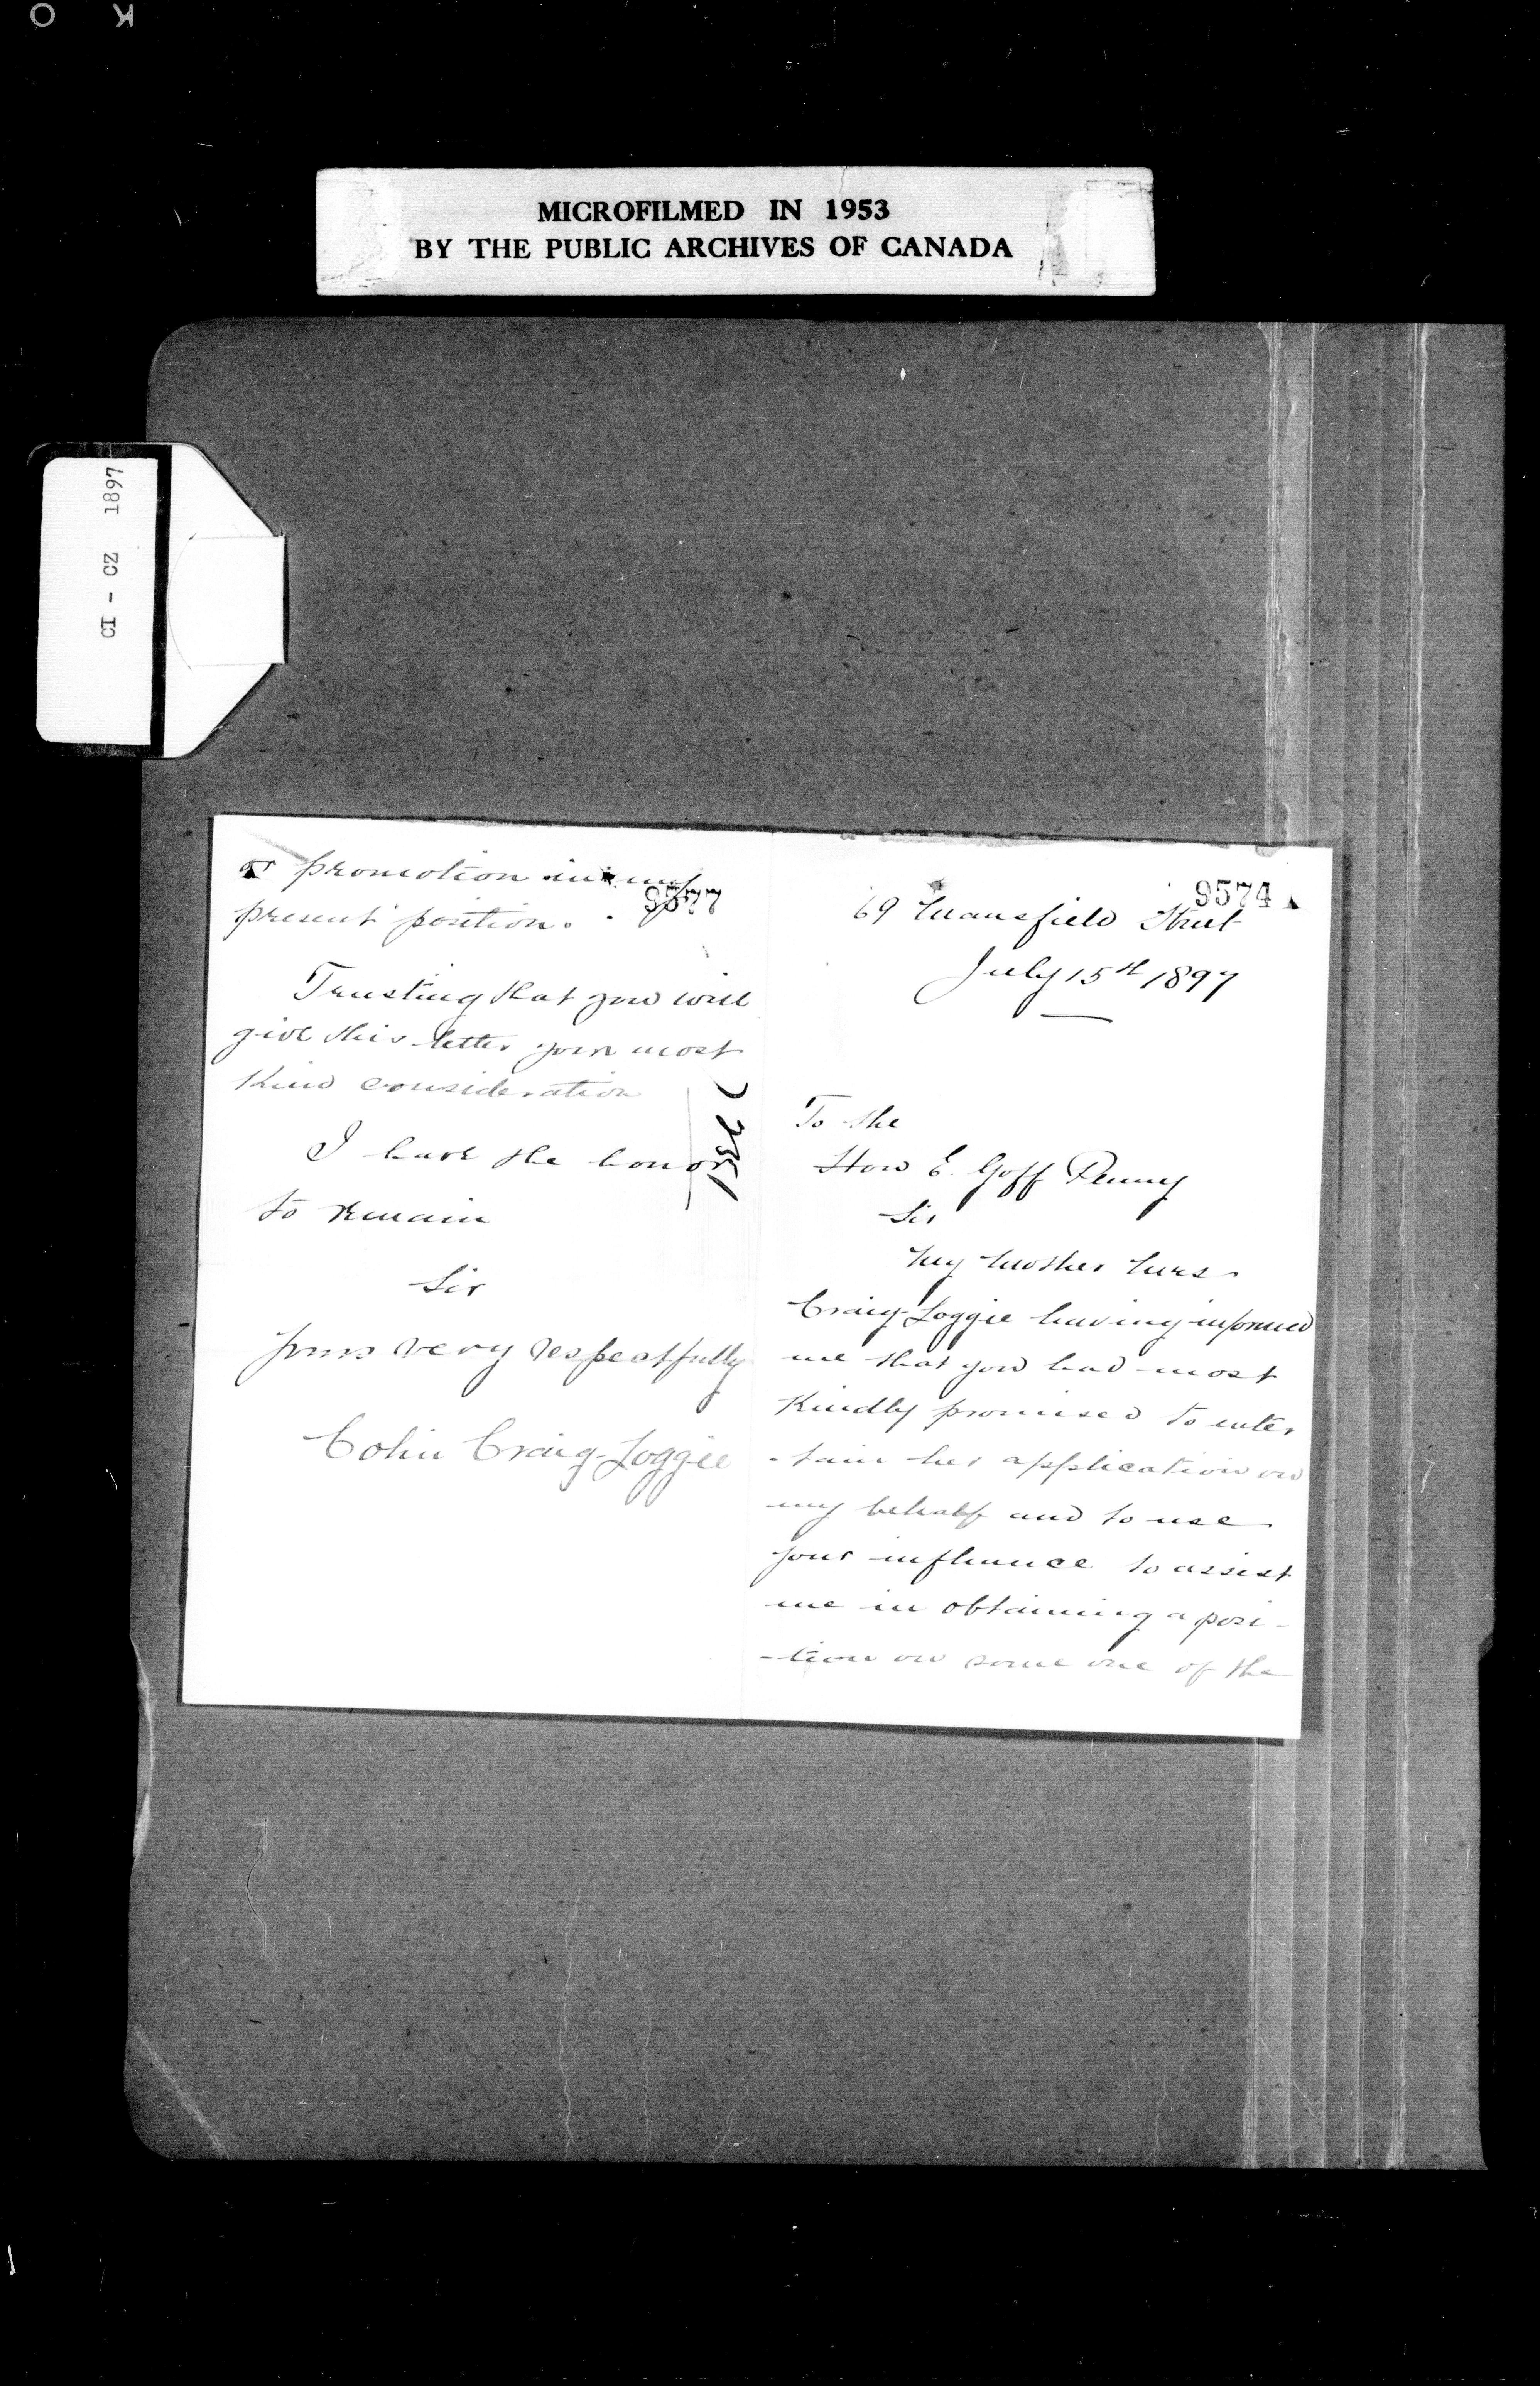 O K
MICROFILMED IN 1953
BY THE PUBLIC ARCHIVES OF CANADA
CI - CZ 1897
or promotion in my
8577
present position.
Trusting that you will
give this letter your most
Kind consideration
I have the honor
to remain
Sir
yours very respectfully
Colin Craig-Loggie
8574
69 Mansfield Street
July 15th 1897
To the
Hon E. Goff Penny
Sir
My Mother Mrs
Craig-Loggie having informed
me that you had most
Kindly promised to enter
-tain her application on
my behalf and to use
your influence to assist
me in obtaining a posi-
-tion on some one of the